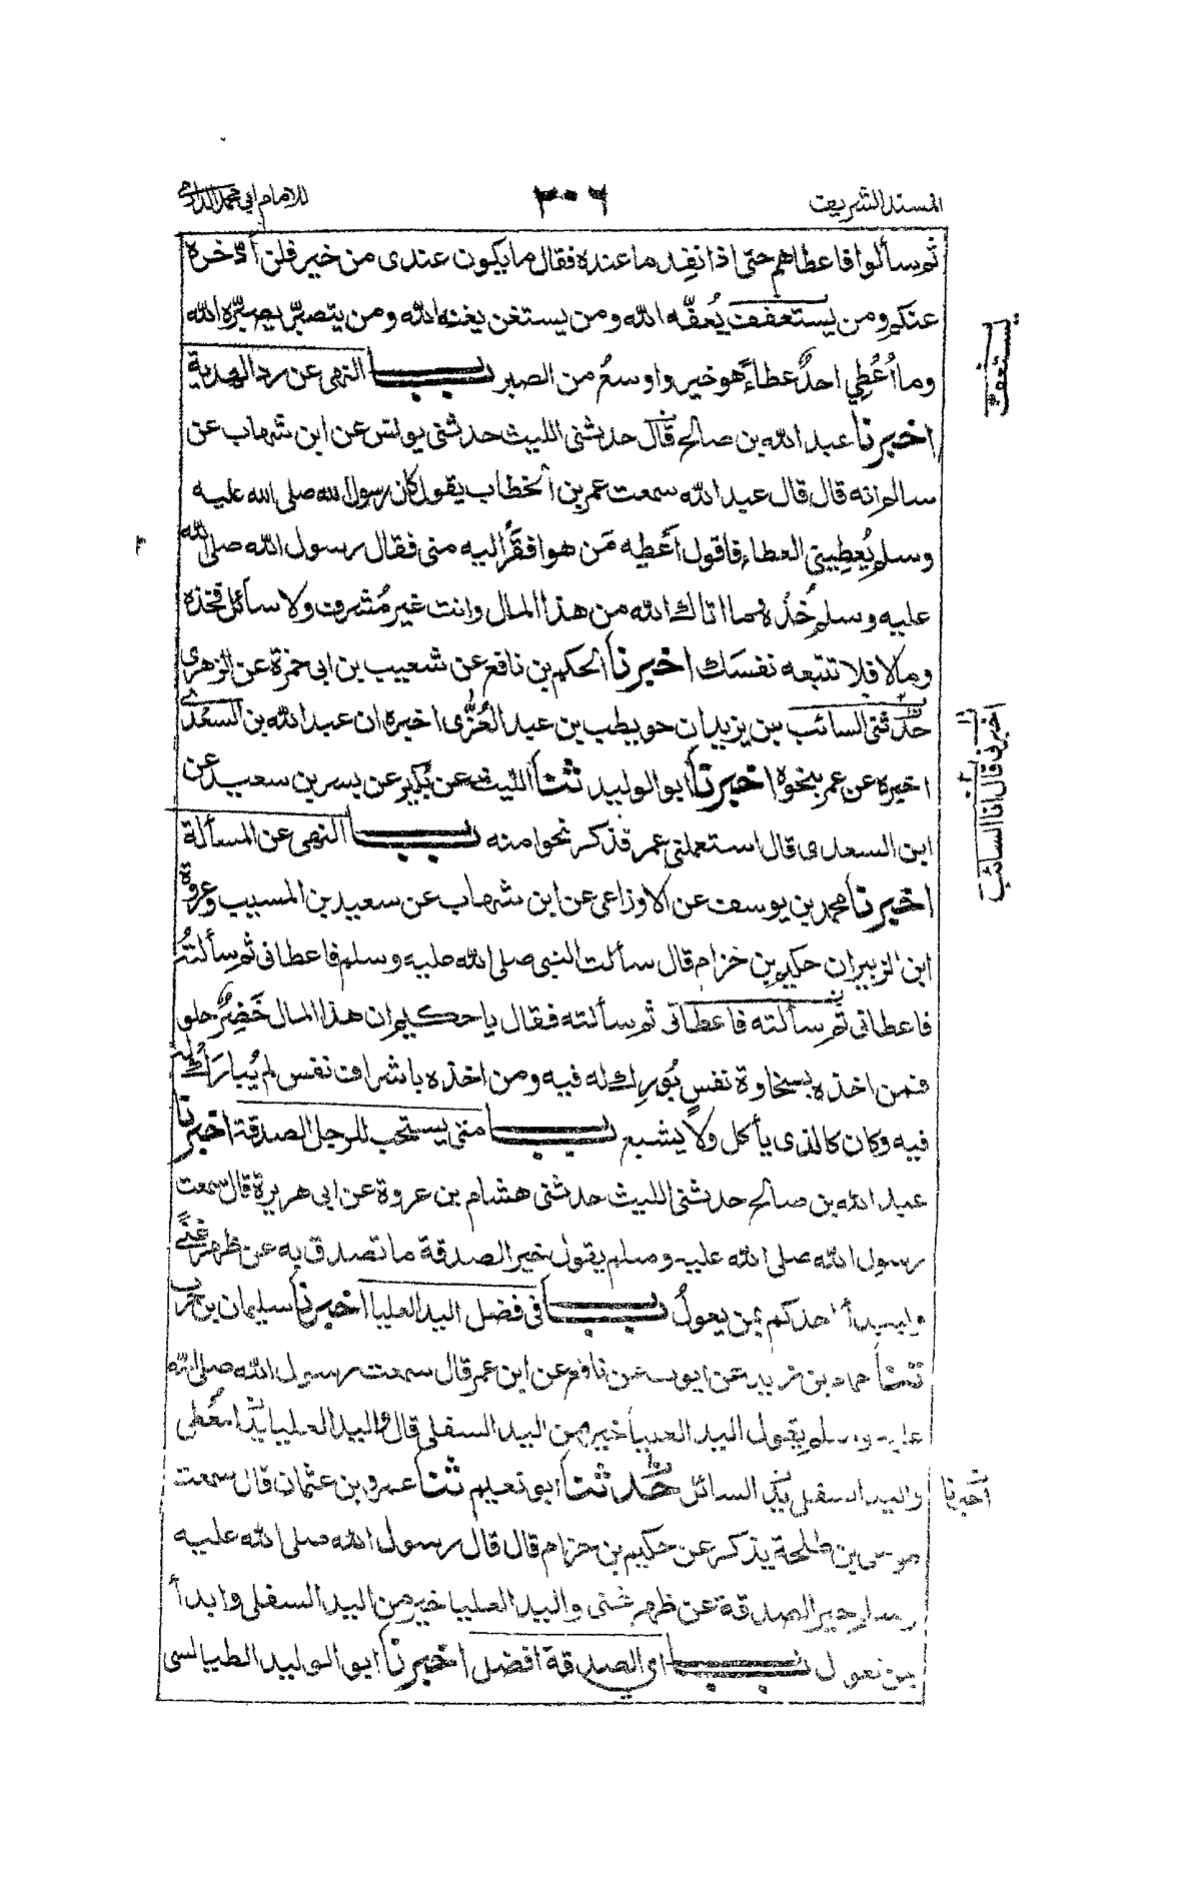 المسند الشريف
٢٠٦
للامام ابي محمد الدارمي
ثم سألوا فاعطاهم حتى اذا نفِد ما عنده فقال ما يكون عندى من خير فلن أدّخره
عنكم ومن يستعفف يُعفّه الله ومن يستغن يغنه الله ومن يتصبّر يصبّره الله
وما أُعْطِي احدٌ عطاءً هو خير واوسعُ من الصبر باب النهى عن رد الهدية
اخبرنا عبد الله بن صالح قال حدثنى الليث حدثنى يونس عن ابن شهاب عن
سالم انه قال قال عبد الله سمعت عمر بن الخطاب يقول كان رسول الله صلى الله عليه
وسلم يُعطِينى العطاء فاقول أَعْطِه مَن هو افقَرُ اليه منى فقال رسول الله صلى الله
عليه وسلم خُذْه وما اتاك الله من هذا المال وانت غير مُشرف ولا سائل فخذه
وما لا فلا تتبعه نفسَك اخبرنا الحكم بن نافع عن شعيب بن ابى حمزة عن الزهرى
حدّثنى السائب بن يزيد ان حويطب بن عبد العُزّى اخبره ان عبد الله بن السعدى
اخبره عن عمر بنحوه اخبرنا ابو الوليد ثنا الليث عن بُكير عن بسر بن سعيد عن
ابن السعدى قال استعملنى عمر فذكر نحوا منه باب النهى عن المسألة
اخبرنا محمد بن يوسف عن الاوزاعى عن ابن شهاب عن سعيد بن المسيب وعروة
ابن الزبير ان حكيم بن حزام قال سألت النبى صلى الله عليه وسلم فاعطانى ثم سألتُه
فاعطانى ثم سألته فاعطانى ثم سألته فقال يا حكيم ان هذا المال خَضِرٌ حلو
فمن اخذه بسخاوة نفسٍ بُورِك له فيه ومن اخذه باشراف نفس لم يُبارَك له
فيه وكان كالذى يأكل ولا يشبع باب متى يستحب للرجل الصدقة اخبرنا
عبد الله بن صالح حدثنى الليث حدثنى هشام بن عروة عن ابى هريرة قال سمعت
رسول الله صلى الله عليه وسلم يقول خير الصدقة ما تصدق به عن ظهر غنًى
وليبدأ احدكم بمن يعولُ باب فى فضل اليد العليا اخبرنا سليمان بن حرب
ثنا حماد بن زيد عن ايوب عن نافع عن ابن عمر قال سمعت رسول الله صلى الله
عليه وسلم يقول اليد العليا خير من اليد السفلى قال واليد العليا يدُ المُعْطى
واليد السفلى يدُ السائل حدّثنا ابو نعيم ثنا عمرو بن عثمان قال سمعت
موسى بن طلحة يذكر عن حكيم بن حزام قال قال رسول الله صلى الله عليه
وسلم خير الصدقة عن ظهر غنى واليد العليا خير من اليد السفلى وابدأ
بمن تعول باب اى الصدقة افضل اخبرنا ابو الوليد الطيالسى
يستعفف
اخبرنى قال انا السائب
أخبرنا